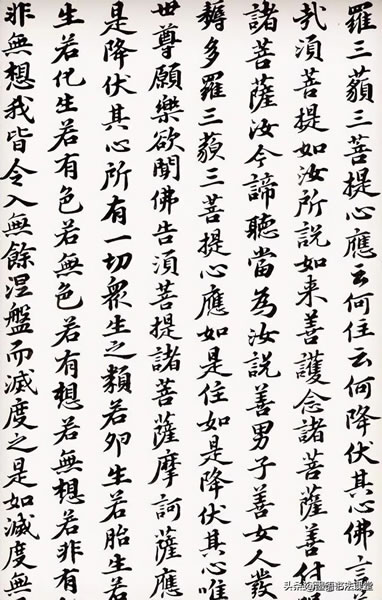 羅三藐三菩提心應云何住云何降伏其心佛言
哉須菩提如汝所説如来善護念諸菩薩善付
諸菩薩汝今諦聽當為汝説善男子善女人發
耨多羅三藐三菩提心應如是住如是降伏其心唯
世尊願樂欲聞佛告須菩提諸菩薩摩訶薩應
是降伏其心所有一切衆生之類若卵生若胎生若
生若化生若有色若無色若有想若無想若非有
非無想我皆令入無餘涅盤而滅度之是如滅度無
头条 书法课堂